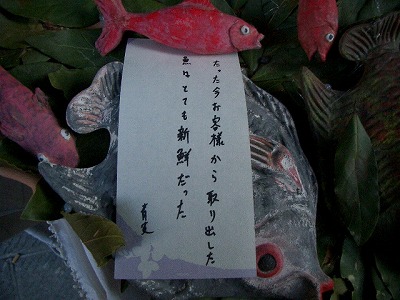 たった今お客様から取り出した
魚はとても新鮮だった